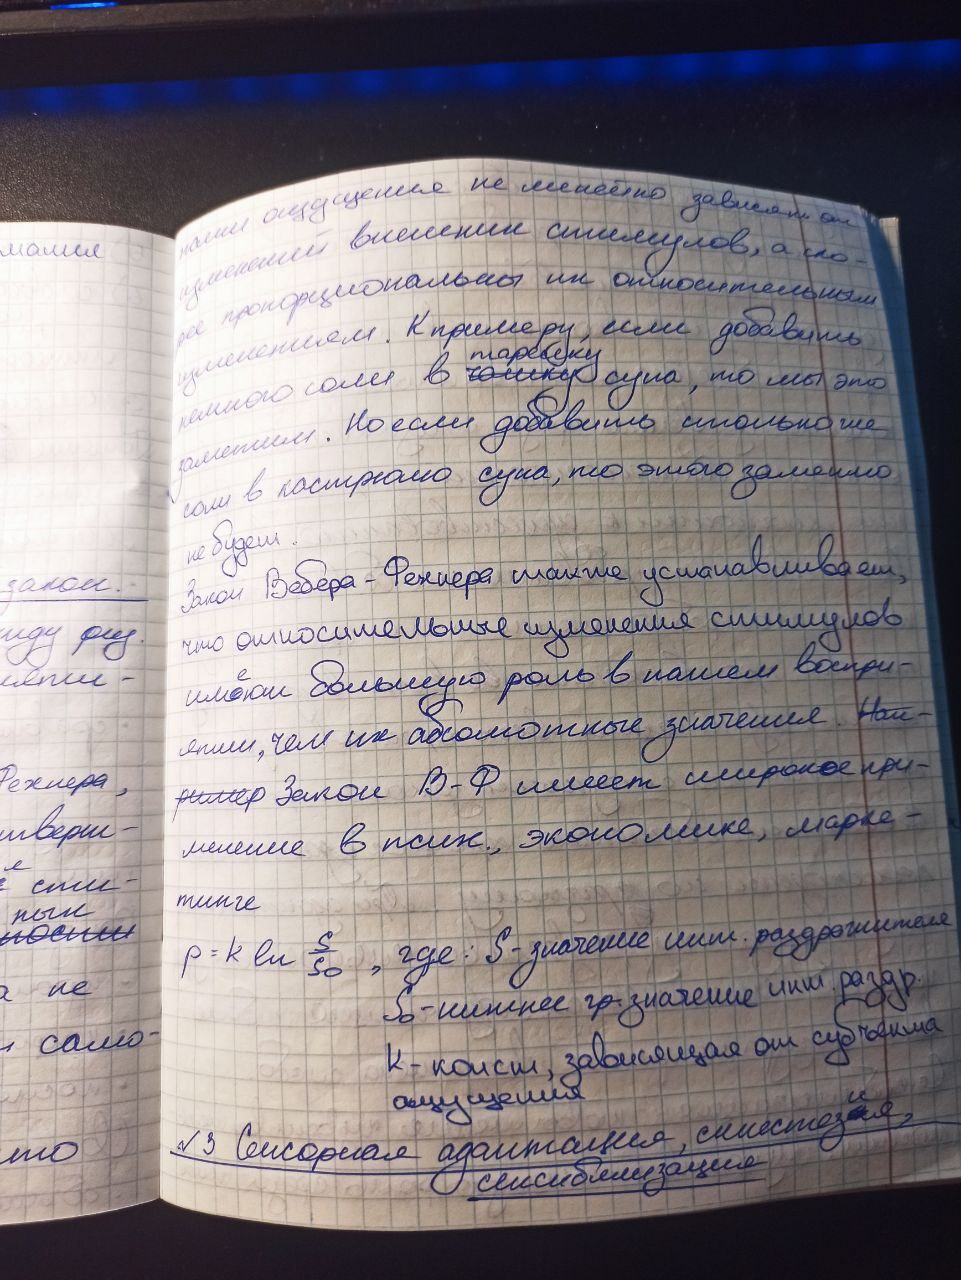 мания
закон.
нашы ощущения не линейно зависят от
изменений внешних стимулов, а ско-
рее пропорциональны их относительным
изменениям. К примеру, если добавить
немного соли в чашку тарелку супа, то мы это
заметим. Но если добавить столько же
соли в кастрюлю супа, то этого заметно
не будет.
Закон Вебера-Фехнера также устанавливает,
что относительные изменения стимулов
имеют большую роль в нашем воспри-
ятии, чем их абсолютные значения. Нап-
ример Закон В-Ф имеет широкое при-
менение в псих., экономике, марке-
тинге
p = k ln S/S₀, где: S-значение инт. раздражителя
S₀-нижнее гр. значение инт. раздр.
k-конст, зависящая от субъекта
ощущения
√3 Сенсорная адаптация, синестезия,
сенсибилизация
Фехнера,
тверж-
я
сти-
ных
а не
само-